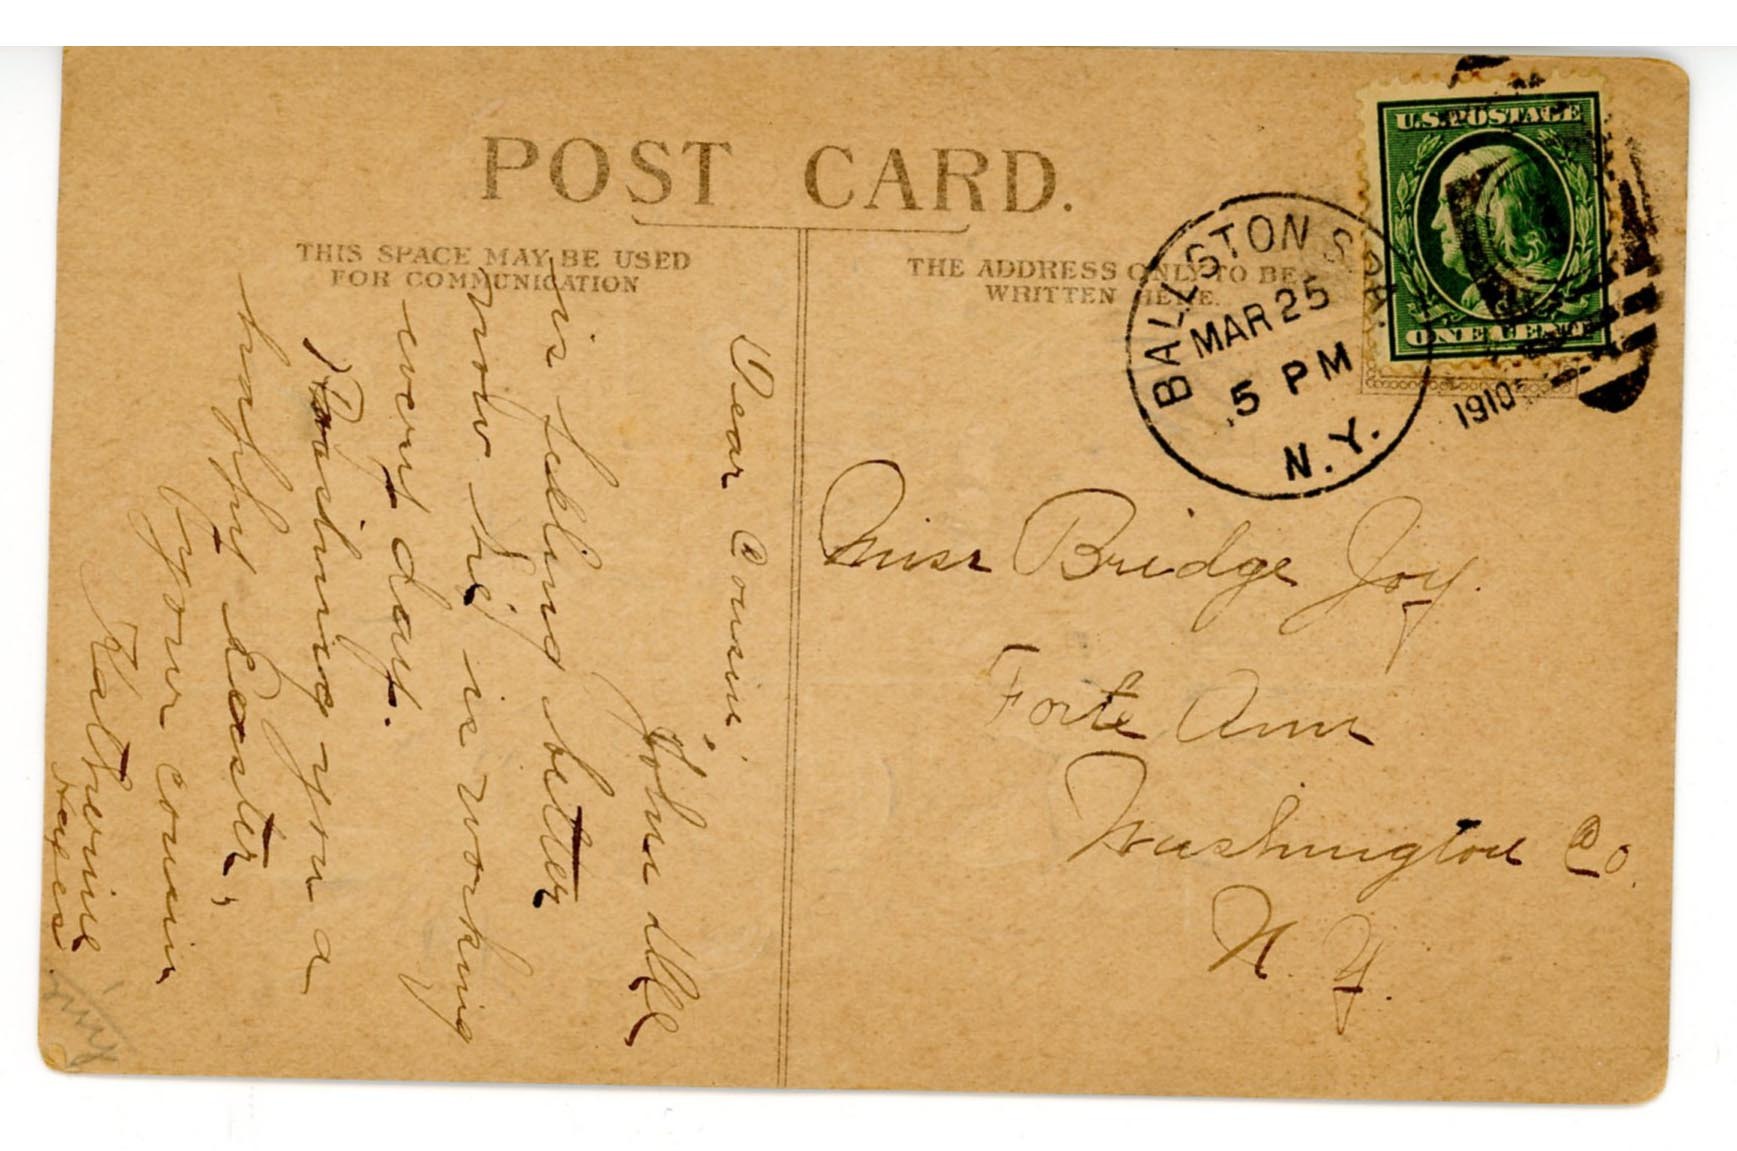 POST CARD.
THIS SPACE MAY BE USED
FOR COMMUNICATION
THE ADDRESS ONLY TO BE
WRITTEN HERE.
BALLSTON SPA.
MAR 25
5 PM
N.Y.
1910
U.S. POSTAGE
ONE CENT
Dear Cousin,
John
is feeling better
now he is working
every day.
you a
Easter,
your cousin,
Katherine
Hayes
Miss Bridge Joy.
Forte Ann
Washington Co.
N. Y.